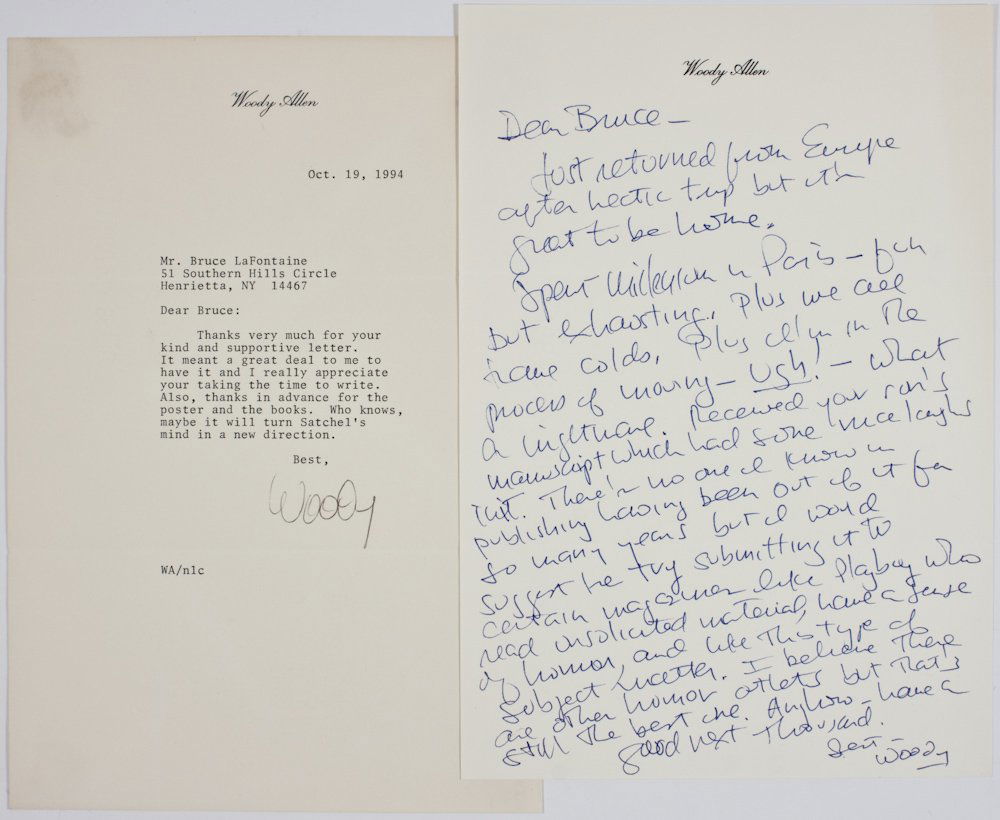 Woody Allen
Oct. 19, 1994
Mr. Bruce LaFontaine
51 Southern Hills Circle
Henrietta, NY 14467
Dear Bruce:
Thanks very much for your
kind and supportive letter.
It meant a great deal to me to
have it and I really appreciate
your taking the time to write.
Also, thanks in advance for the
poster and the books. Who knows,
maybe it will turn Satchel's
mind in a new direction.
Best,
Woody
WA/nlc
Woody Allen
Dear Bruce—
Just returned from Europe
after hectic trip but it's
great to be home.
Spent Millenium in Paris — fun
but exhausting. Plus we all
have colds, plus I'm in the
process of moving — Ugh! — what
a nightmare. Received your son's
manuscript which had some nice laughs
in it. There's no one I know in
publishing having been out of it for
so many years but I would
suggest he try submitting it to
certain magazines like Playboy who
read unsolicited material, have a sense
of humor, and like this type of
subject matter. I believe there
are other humor outlets but that's
still the best one. Anyhow — have a
good next thousand.
Best—
Woody